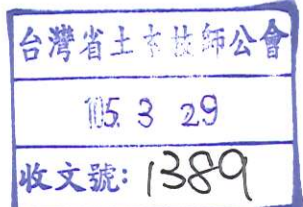 台灣省土木技師公會
105. 3 29
收文號: 1389